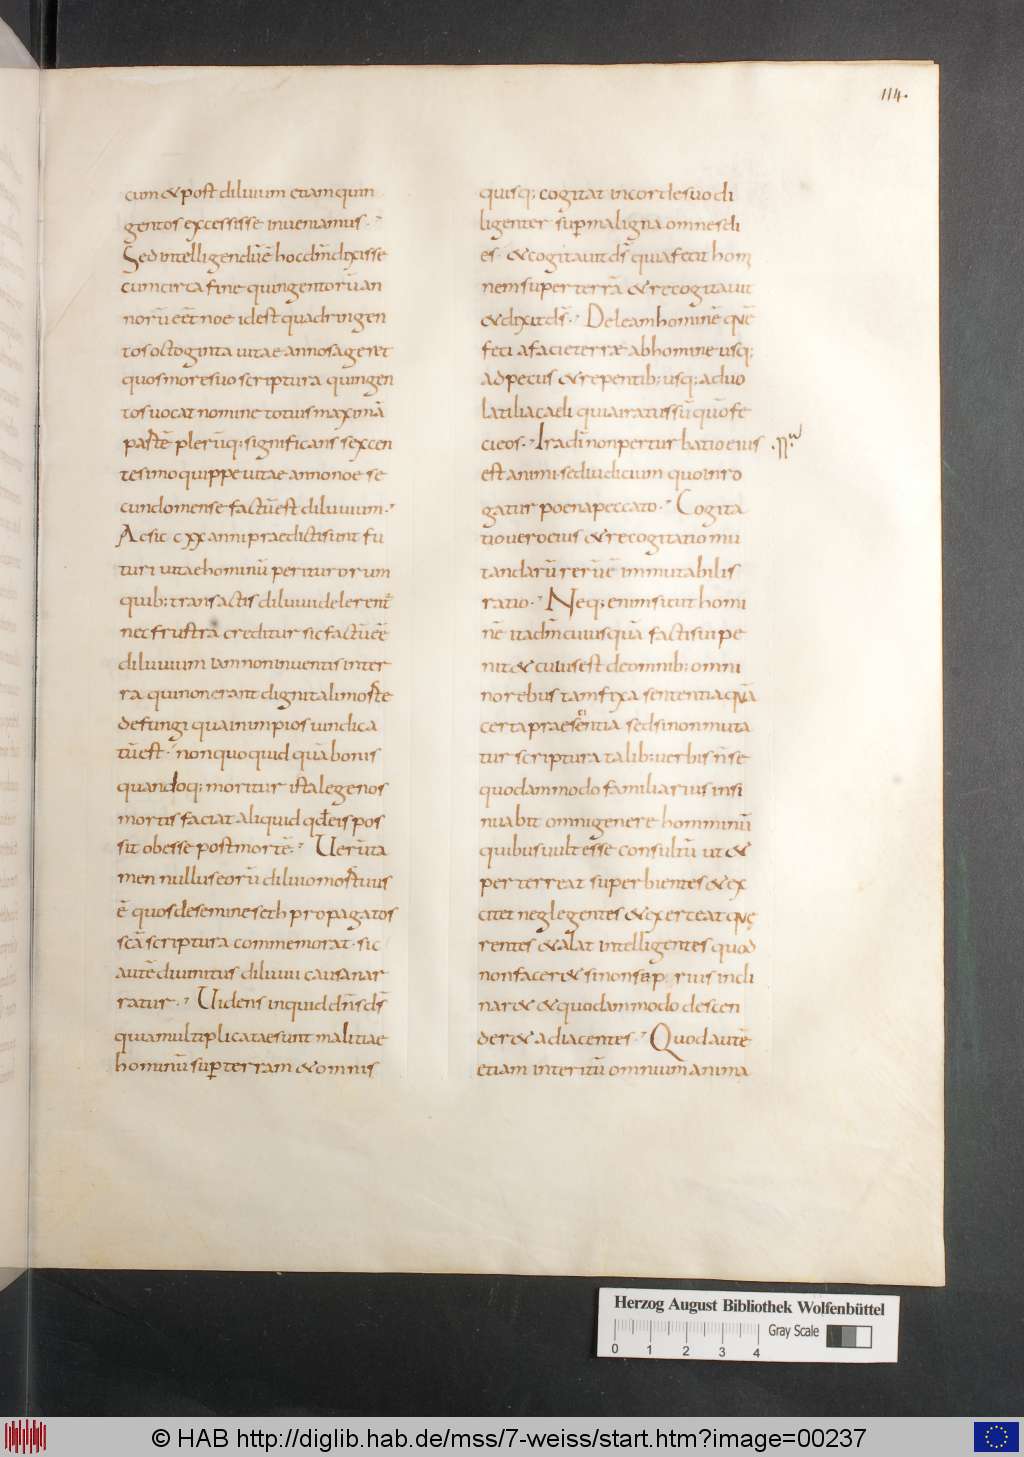 114.
cum & post diluuium etiam quin
gentos excessisse inueniamus.
Sed intellegendū ē hoc dm̄ dixisse
cum circa fine quingentorū an
norū eēt noe id est quadringen
tos octoginta uitae annos ageret
quos more suo scriptura quingen
tos uocat nomine totius maximā
partē plerūq; significans sexcen
tesimo quippe uitae anno noe se
cundo mense factū est diluuium.
Ac sic cxx anni praedicti sunt fu
turi uitae hominū periturorum
quib; transactis diluuio delerent̄
nec frustra creditur sic factū eē
diluuium iam non inuentis in ter
ra qui non erant digni tali morte
defungi qua in impios uindica
tū est. non quo quid quā bonis
quandoq; morituris ista le genos
mortis faciat aliquid qđ eis pos
sit obesse post mortē. Uerūta
men nullus eorū diluuio mortuus
ē quos de semine seth propagatos
scā scriptura commemorat. sic
autē diuinitus diluuii causa nar
ratur. Uidens inquid dn̄s ds̄
quia multiplicatae sunt malitiae
hominū super terram & omnis
quisq; cogitat in corde suo di
ligenter super maligna omnes di
es. & cogitauit ds̄ quia fecit homi
nem super terrā & recogitauit
& dixit ds̄. Deleam hominē quē
feci a facie terrae ab homine usq;
ad pecus & repentib; usq; ad uo
latilia caeli quia iratus sū quō fe
ci eos. Ira di nōn perturbatio eius
est animi. sed iudicium quo inro
gatur poena peccato. Cogita
tio uero eius & recogitatio mu
tandarū rerū ē immutabilis
ratio. Neq; enim sicut homi
nē ita dm̄ cuiusquā facti sui pe
nit & cuius est de omnib; omni
no rebus tam fixa sententia quā
certa praesentia sed si non muta
tur scriptura talib; uerbis n̄ se
quodammodo familiarius insi
nuabit omni genere homminū
quibus uult esse consultū ut &
perterreat superbientes & ex
citet neglegentes & exerceat quę
rentes & alat intellegentes quod
non facer& si non se p rius indi
nar& & quodammodo descen
der& ad iacentes. Quod autē
etiam interitū omnium anima
Herzog August Bibliothek Wolfenbüttel
Gray Scale
0 1 2 3 4
© HAB http://diglib.hab.de/mss/7-weiss/start.htm?image=00237